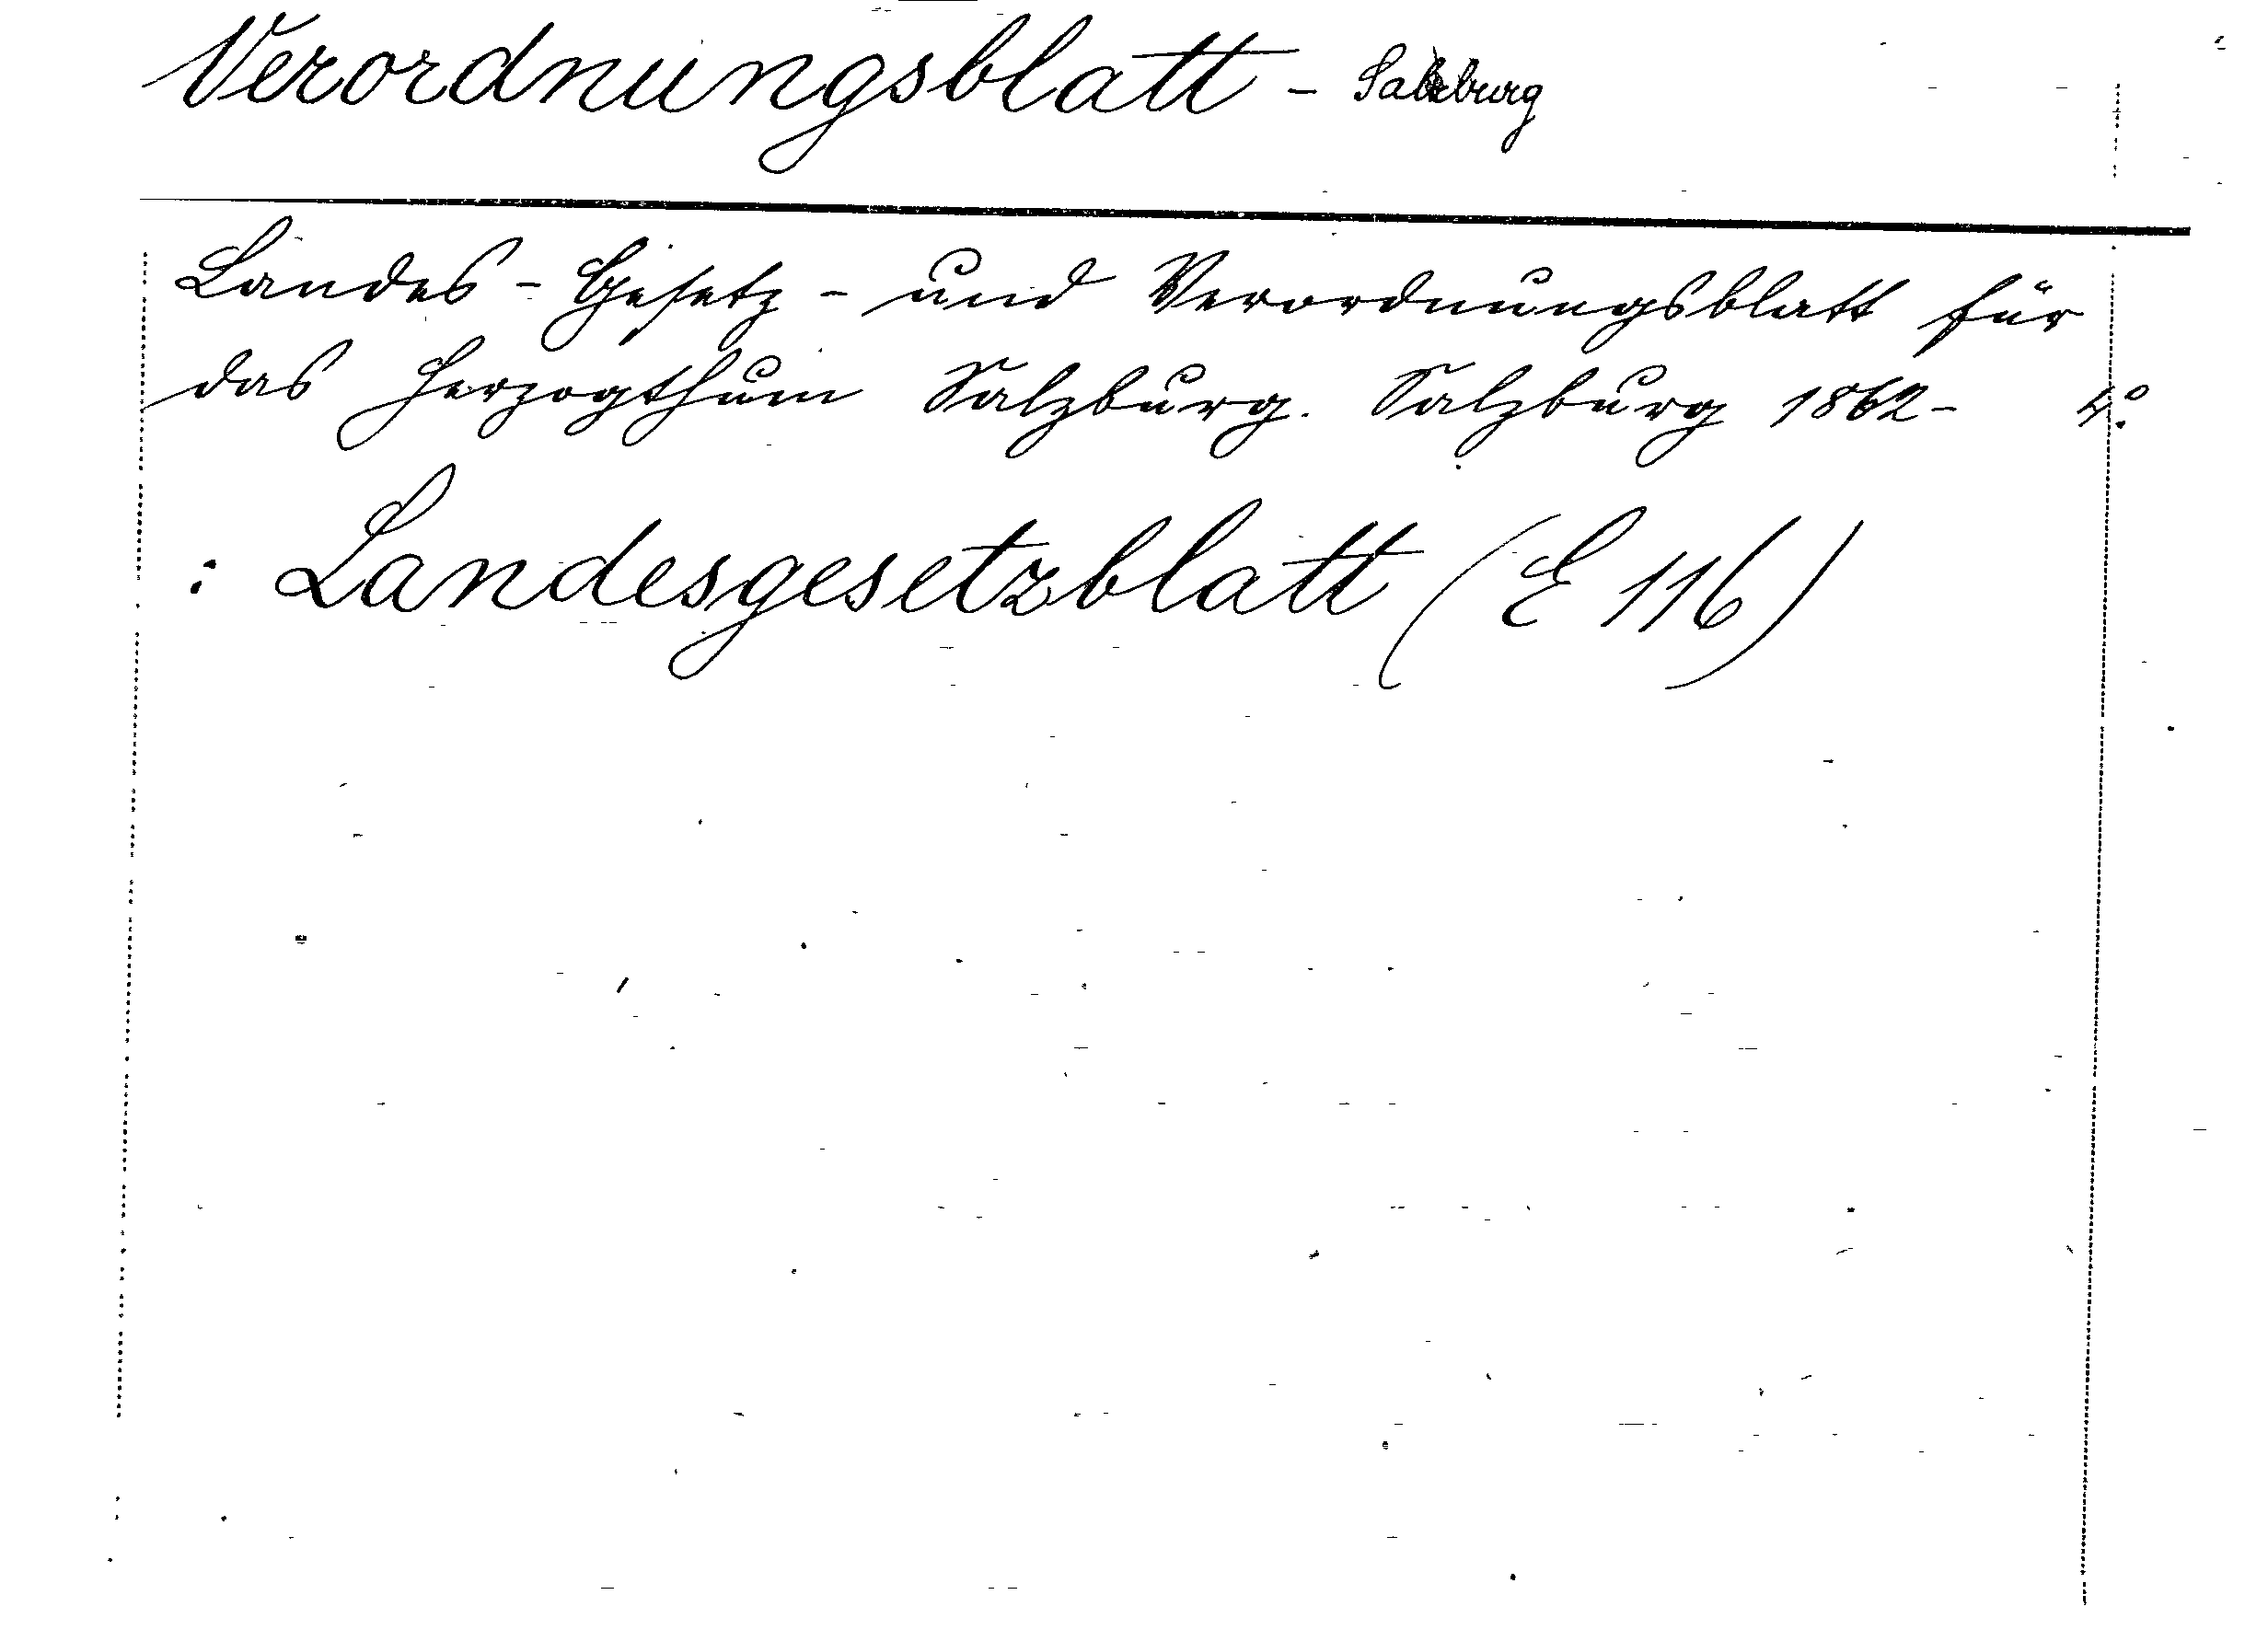 Verordnungsblatt - Salzburg
Landes-Gesetz- und Verordnungsblatt für
das Herzogthum Salzburg. Salzburg 1862- 4°.
: Landesgesetzblatt (E 116)